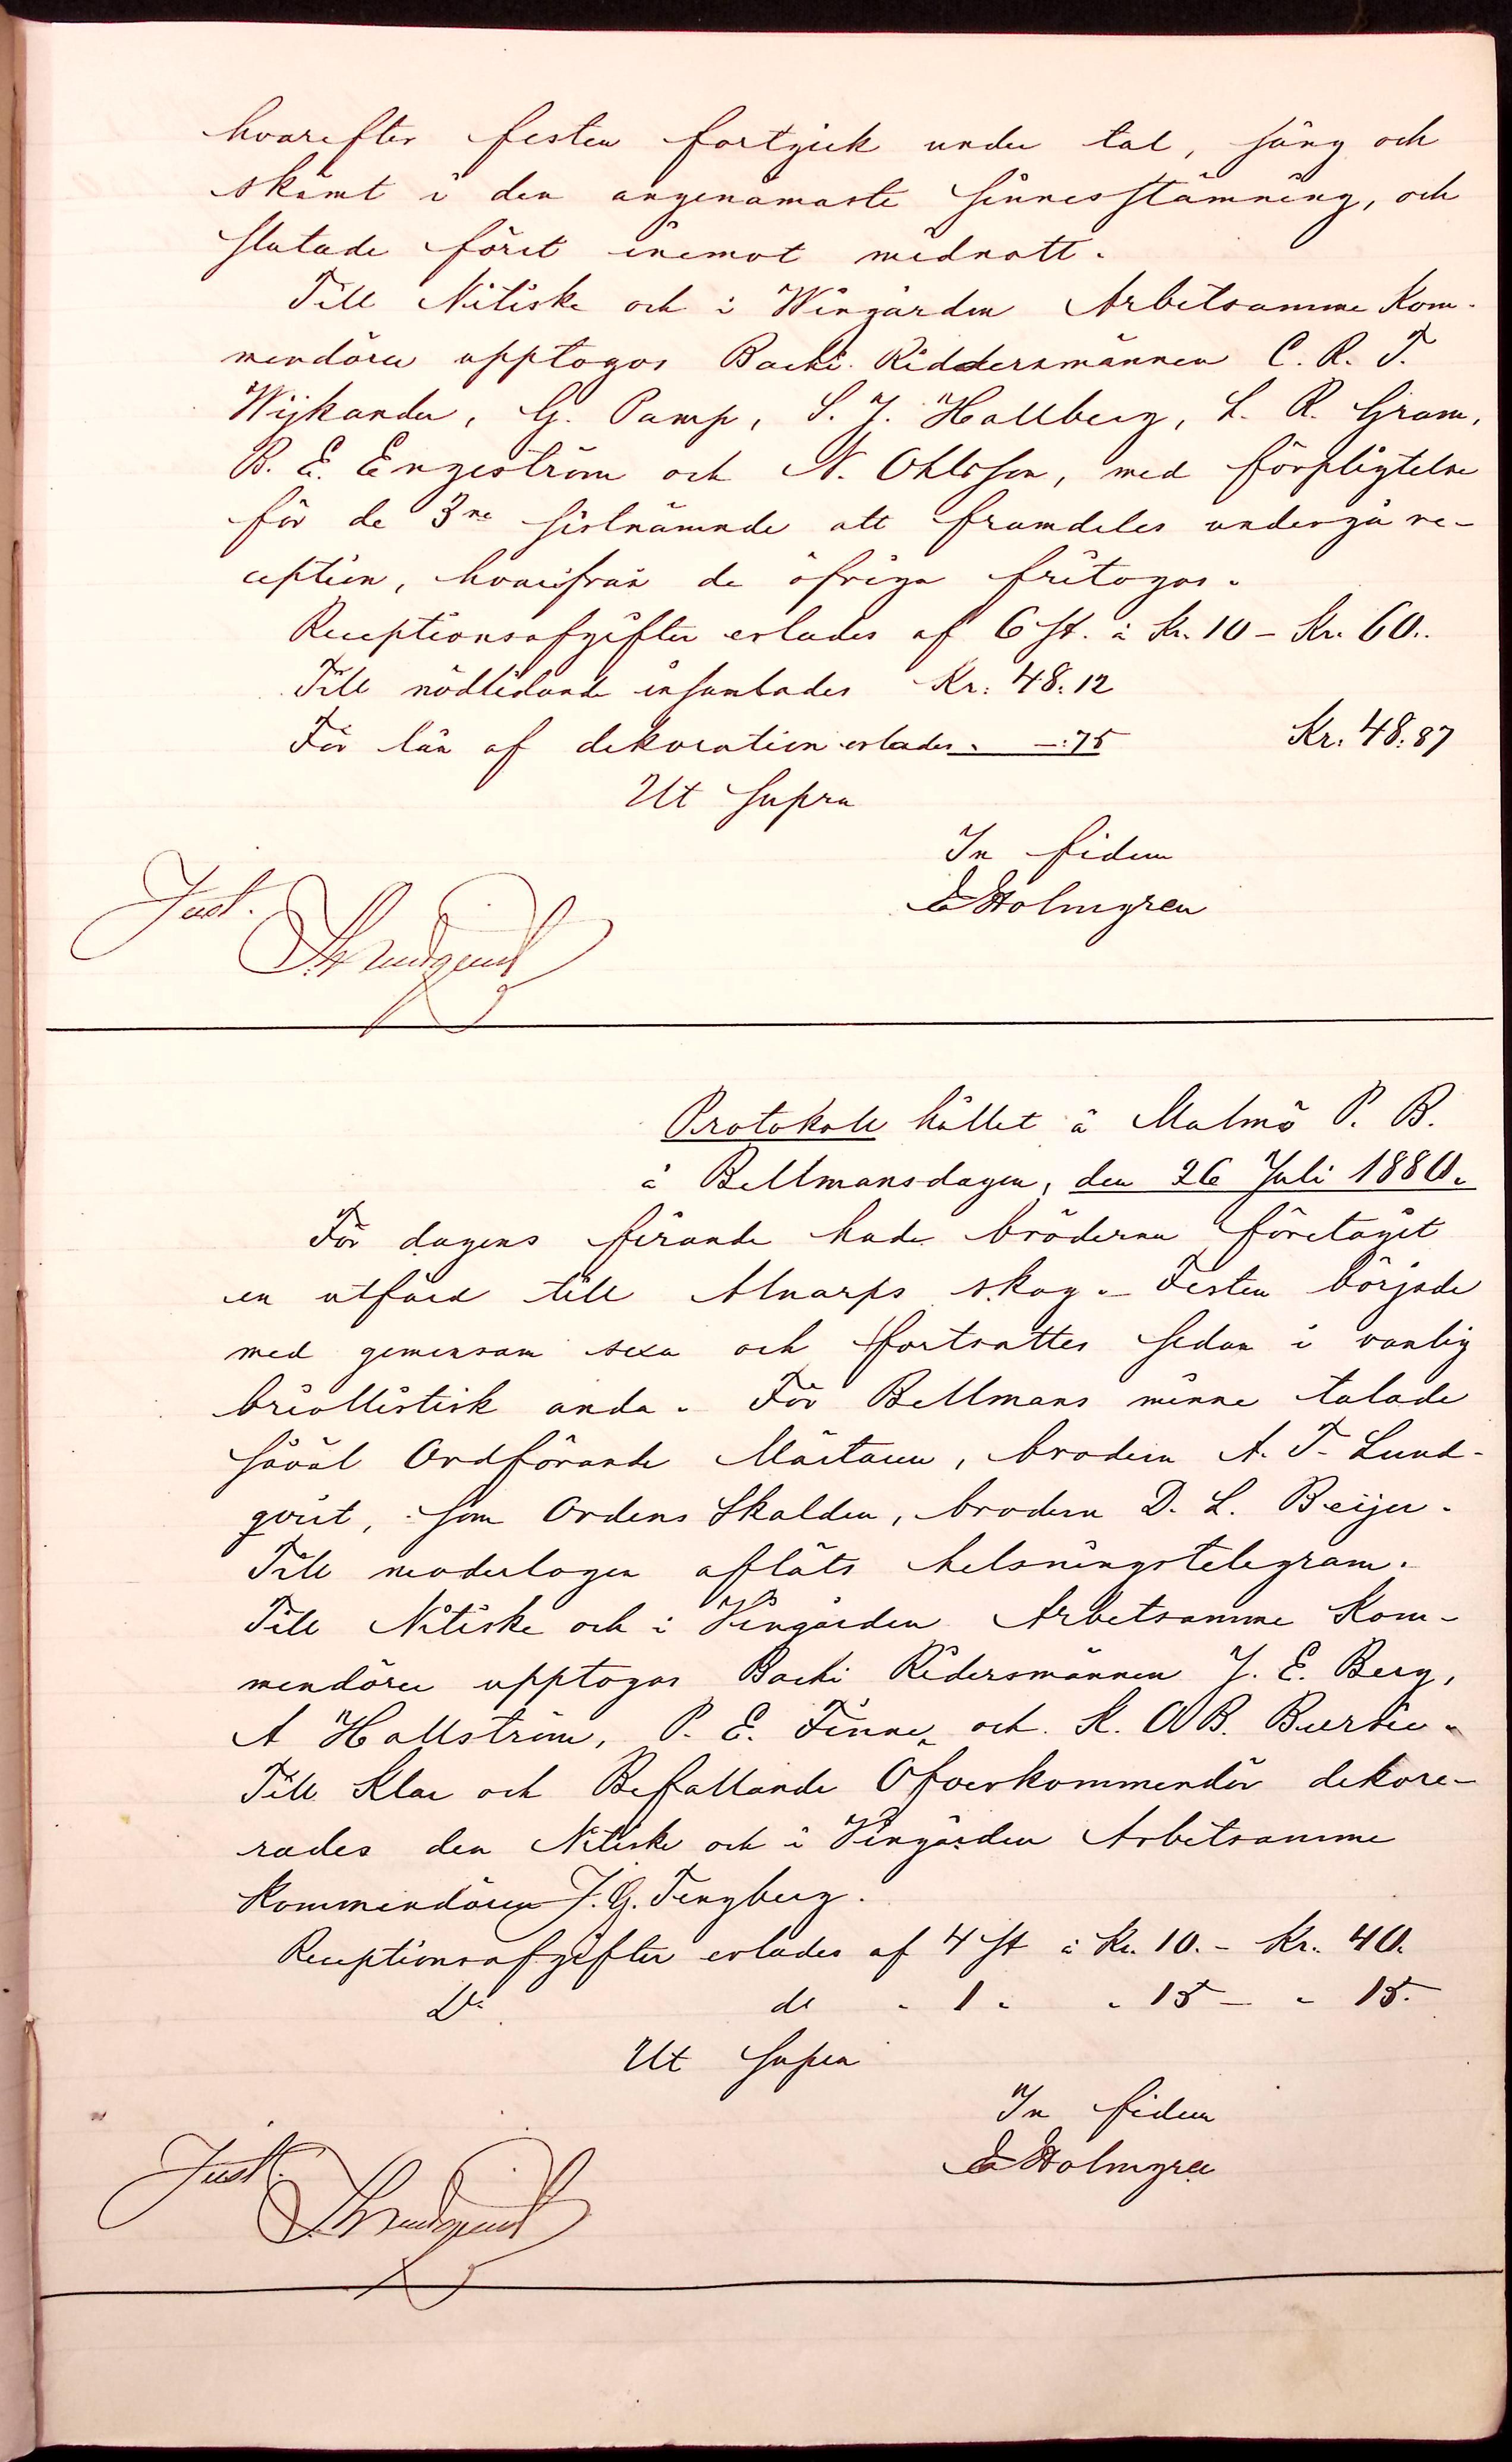 hvarefter festen fortgick under tal, sång och
skämt i den angenämaste sinnesstämning, och
slutade först inemot midnatt.
Till Nitiske och i Wingården Arbetsamme Kom-
mendörer upptogos Bachi Riddersmännen C. R. T.
Wijkander, G. Pamp, S. J. Hallberg, L. R. Gram,
B. E. Engeström och N. Ohlsson, med förpligtelse
för de 3ne sistnämnde att framdeles undergå re-
ception, hvarifrån de öfriga fritogos.
Receptionsafgifter erlades af 6 st. à Kr. 10 – Kr. 60..
Till nödlidande insamlades Kr: 48: 12
För lån af dekoration erlades. —: 75 Kr: 48: 87
Ut supra
In fidem
E Holmgren
Just.
Lundquist
Protokoll hållet å Malmö P. B.
å Bellmansdagen, den 26 Juli 1880.
För dagens firande hade bröderna företagit
en utfärd till Alnarps skog. Festen började
med gemensam sexa och fortsattes sedan i vanlig
briollistisk anda. För Bellmans minne talade
såväl Ordförande Mästaren, brodern A. T. Lund-
qvist, som Ordens Skalden, brodern D. L. Beijer.
Till moderlogen afläts helsningstelegram.
Till Nitiske och i Vingården Arbetsamme Kom-
mendörer upptogos Bachi Ridersmännen J. E. Berg,
A Hallström, P. E. Finne, och K. A B.
Till Klar och Befallande Öfverkommendör dekore-
rades den Nitiske och i Vingården Arbetsamme
Kommendören J. G. Tengberg.
Receptionsafgifter erlades af 4 st à Kr. 10. – Kr. 40.
Do do " 1 " " 15 – " 15.
Ut supra
In fidem
E Holmgren
Just.
Lundquist